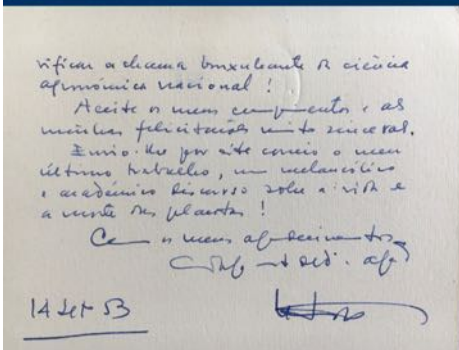 vificar a chama bruxuleante da ciência
agronómica nacional !
Aceite os meus cumprimentos e as
minhas felicitações muito sinceras.
Envio-lhe por este correio o meu
último trabalho, um melancólico
e académico discurso sobre a vida e
a morte das plantas !
Com os meus agradecimentos,
14 Set 53